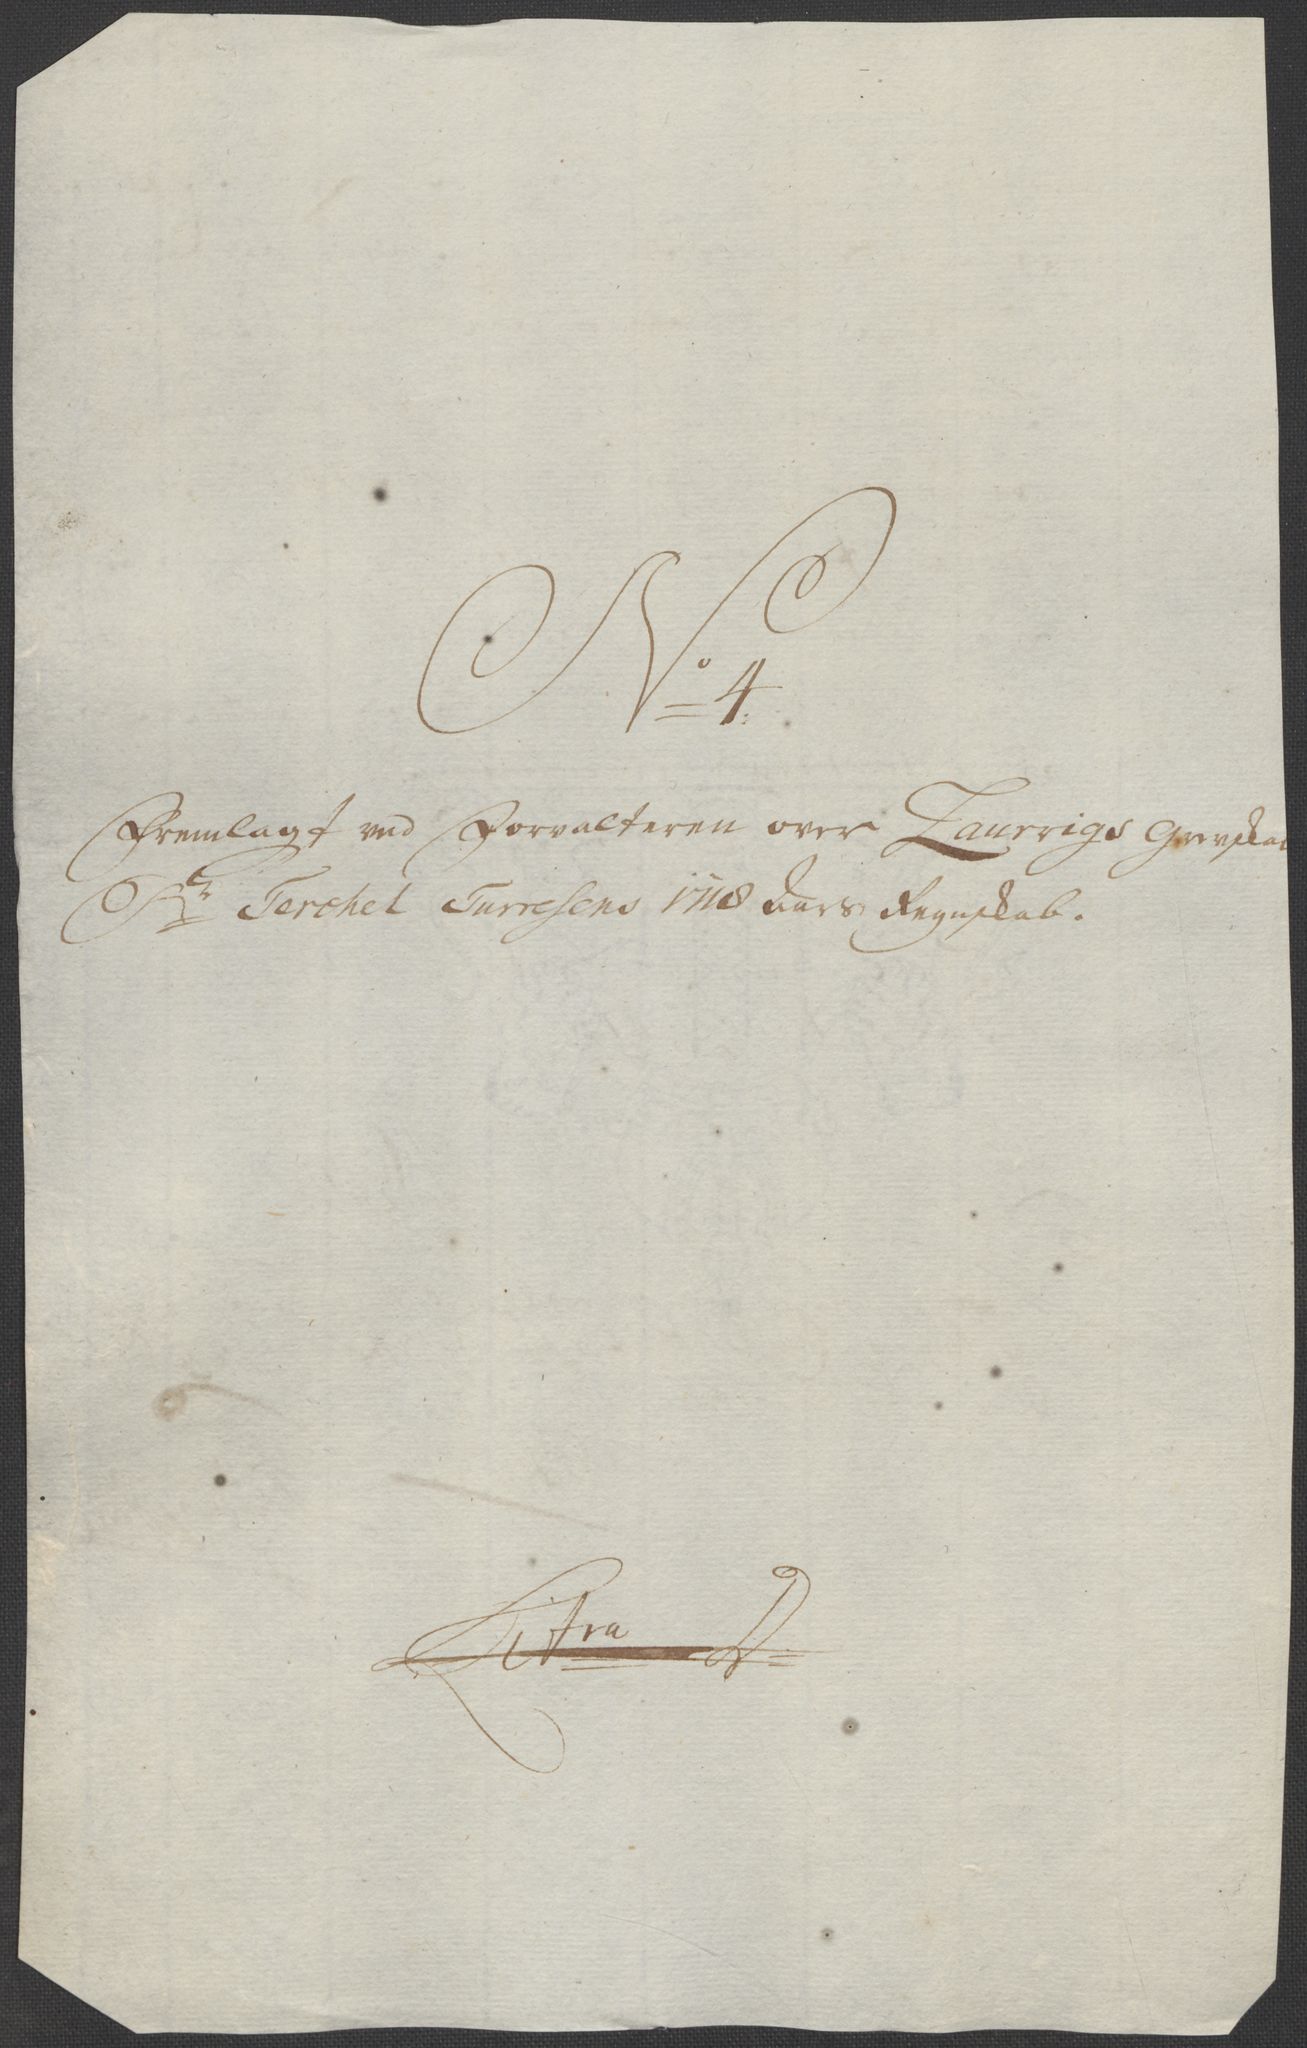 No 4.
Fremlagt ved Forvalteren over Laurvigs Grevskab
Sr Terchel Turresens 1718 Aars Regnskab.
Litra D.